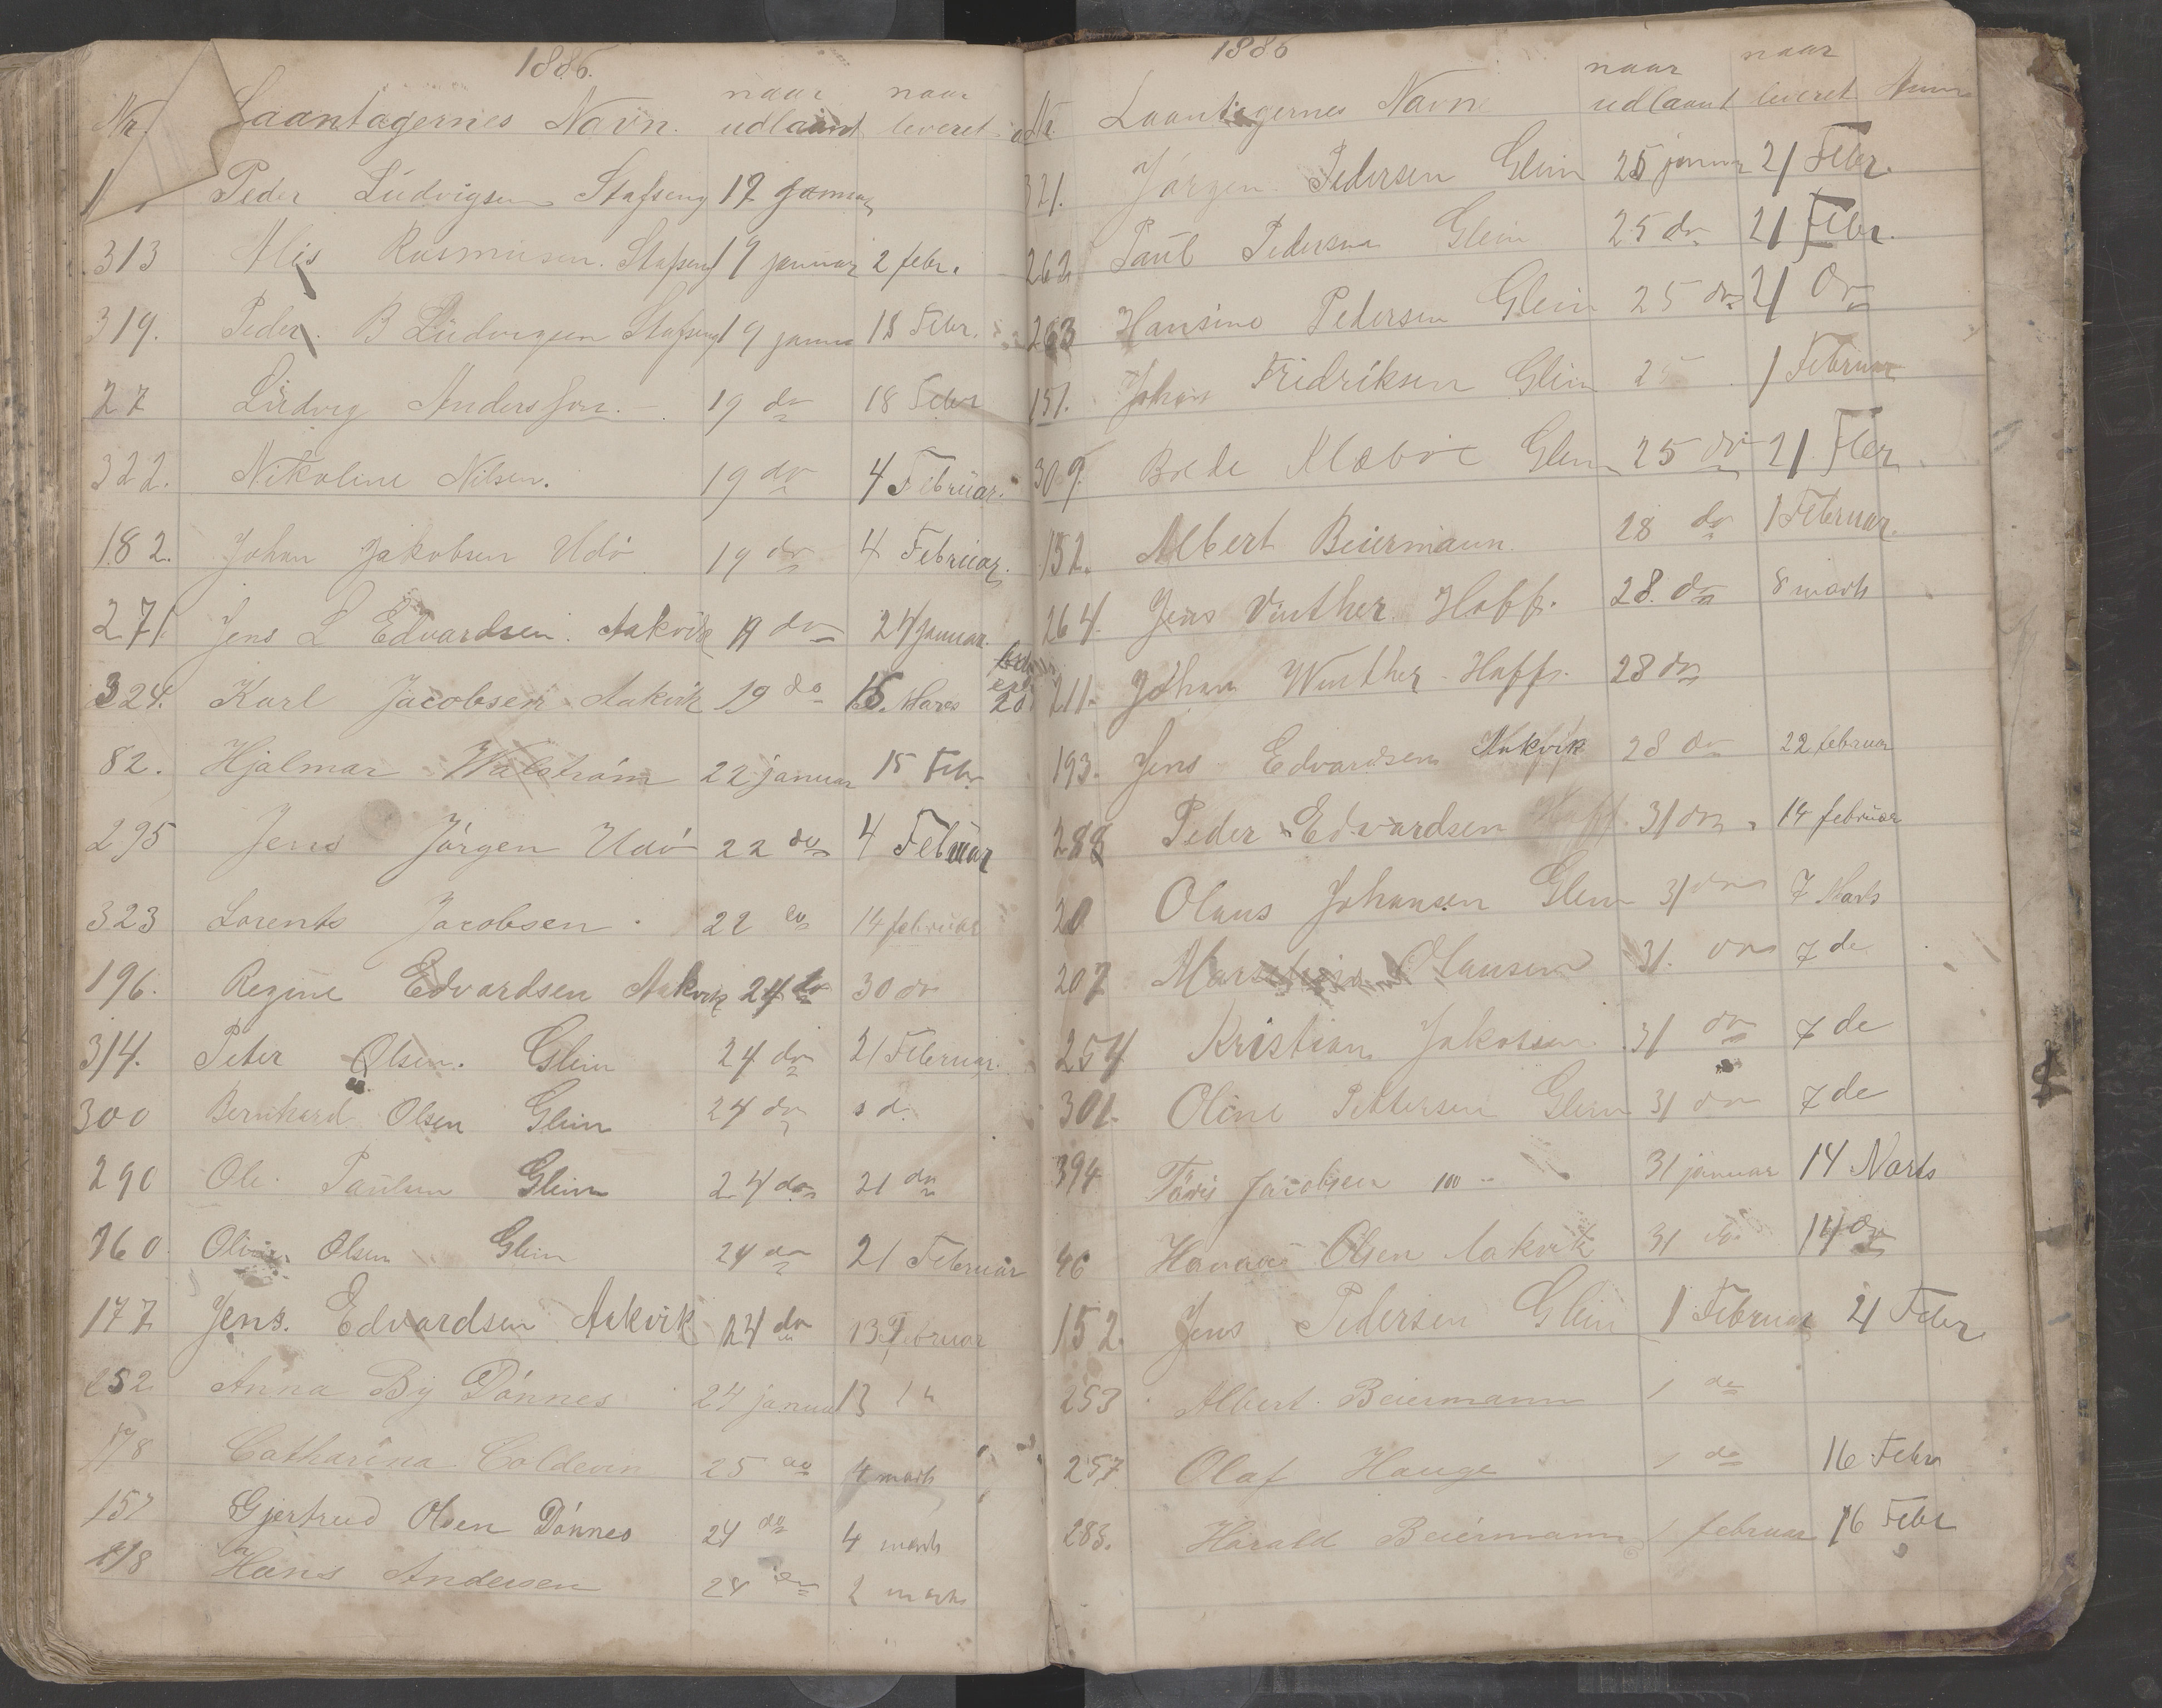 1886.
Nr. Laantagernes Navn. naar udlaant naar leveret
Peder Ludvigsen Stafseng 17 Januar
313 Rasmusen. Stafseng 19 januar 2 febr.
319. Peder B Lüdvigsen Stafseng 19 januar 18 Febr.
27 Lüdvig Anderssen. 19 do 18 Febr
322. Nikoline Nilsen. 19 do 4 Februar.
182. Johan Jakobsen Udö 19 do 4 Februar.
271. Jens L Edvardsen. Aakvik 19 do 24 januar.
324. Karl Jacobsen Aakvik 19 do 15. Mars 20
82. Hjalmar Walström 22 januar 15 Febr.
295 Jens Jörgen Udö 22 do 4 Februar
323 Lorents Jacobsen 22 do 14 februar
196. Regine Edvardsen Aakvik 24 do 30 do
314. Peter Olsen. Glein 24 do 21 Februar.
300 Bernhard Olsen Glein 24 do
290 Ole Paulsen Glein 24 do 21 do
160 Olsen Glein 24 do 21 Februar
177 Jens. Edvardsen Aakvik 24 do 13 Februar
252 Anna By Dönnes 24 januar 13
178 Catharina Coldevin 25 do 4 marts
157 Gjertrud Olsen Dönnes 24 do 4 marts
Hans Andersen 24 do 2 marts
1886
Nr. Laantagernes Navn naar udlaant naar leveret
321. Jörgen Pedersen Glein 25 januar 21 Febr.
262 Paul Pedersen Glein 25 do 21 Febr.
263 Hansine Pedersen Glein 25 do 21 do
151. Johan Fridriksen Glein 25 1 Februar
309. Klæboe Glein 25 do 21 Febr
152. Albert Beiermann 28 do 1 Februar.
264. Jens Vinther Hoff. 28. do 8 marts
211. Johan Winther Hoff. 28 do
193. Jens Edvardsen Aakvik 28 do 22 februar
288 Peder Edvardsen 31 do 14 februar
20 Olaus Johansen Glein 31 do 7 Marts
207 Olausen 31. do 7 de
254 Kristian Jakobsen 31 do 7 de
301. Oline Pettersen Glein 31 do 7 de
394 Jacobsen 31 januar 14 Marts
46 Olsen Aakvik 31 do 14 do
152. Jens Pedersen Glein 1 Februar 21 Febr
253 Albert Beiermann 1 do
257 Olaf Hauge 1 do 16 Febr
283. Harald Beiermann 1 februar 16 Febr